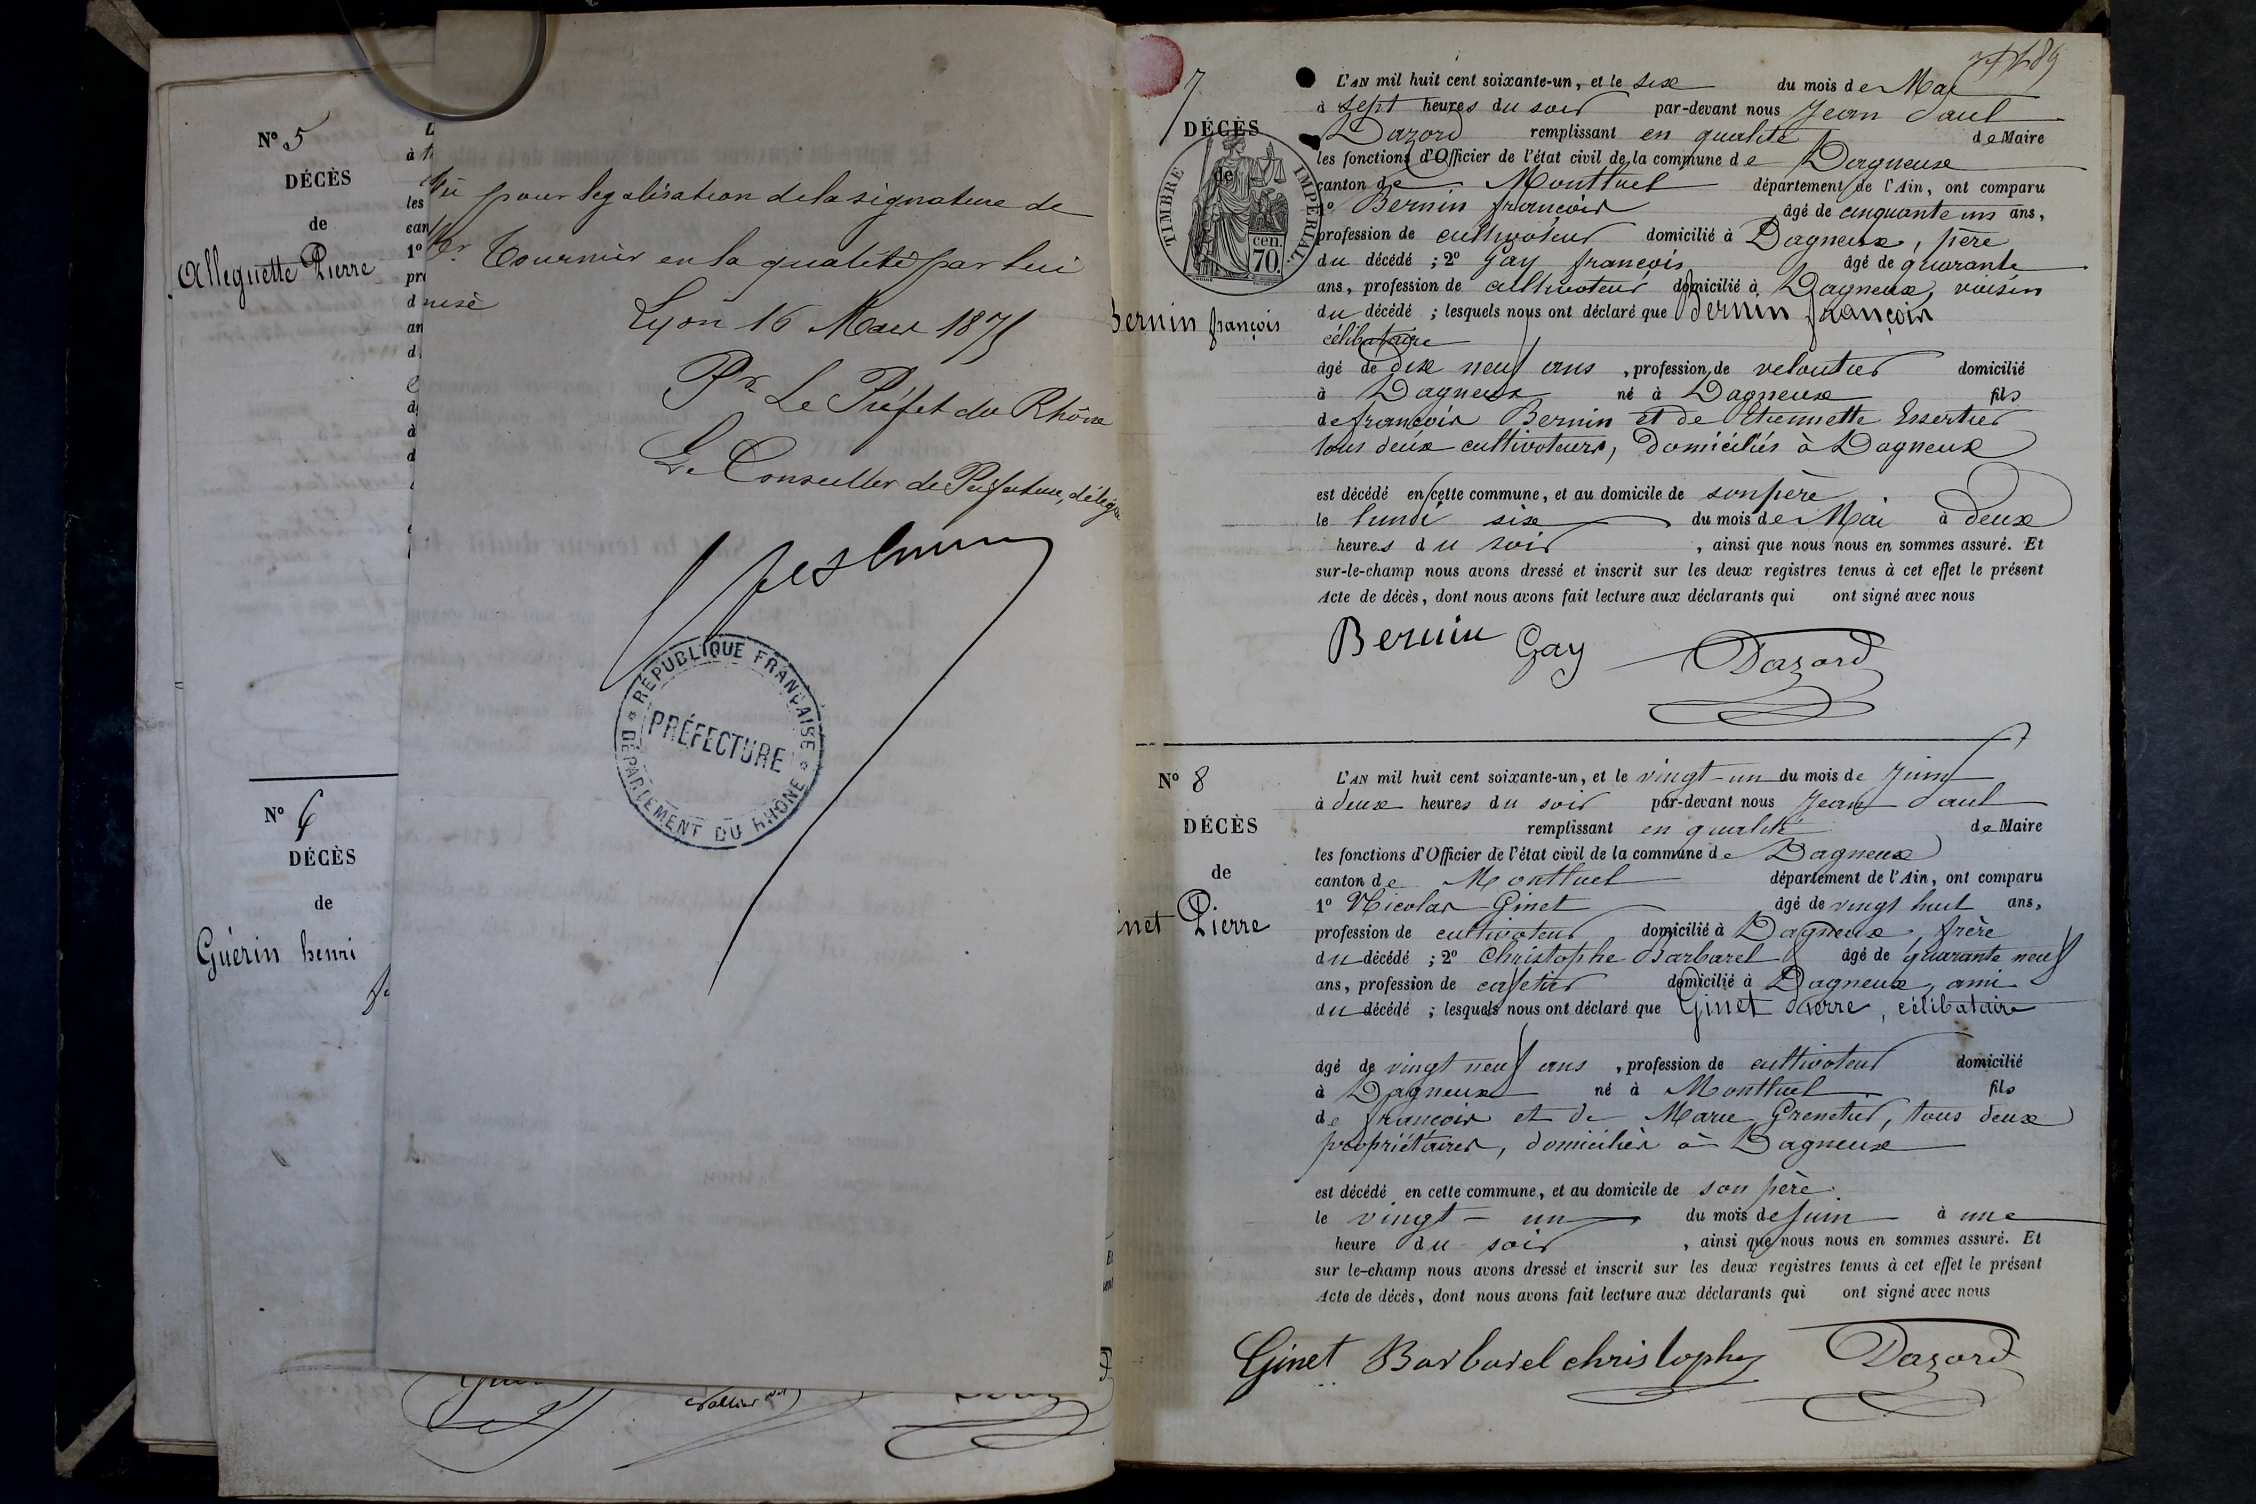 N° 5
DÉCÈS
de
Alleguette Pierre
N° 6
DÉCÈS
de
Guérin henri
Vu pour légalisation de la signature de
Mr. Tournier en la qualité par lui
Lyon 16 Mars 187
Pr. Le Préfet du Rhône
Le Conseiller de Préfecture, délégué
RÉPUBLIQUE FRANÇAISE
PRÉFECTURE
DÉPARTEMENT DU RHÔNE
7
DÉCÈS
de
TIMBRE IMPÉRIAL
70 cen.
Bernin françois
L'AN mil huit cent soixante-un, et le six du mois de Mai
à sept heures du soir par-devant nous Jean Paul
Dazord remplissant en qualité de Maire
les fonctions d'Officier de l'état civil de la commune de Dagneux
canton de Montluel département de l'Ain, ont comparu
1° Bernin françois âgé de cinquante un ans,
profession de cultivateur domicilié à Dagneux, père
du décédé ; 2° Gay françois âgé de quarante
ans, profession de cultivateur domicilié à Dagneux, voisin
du décédé ; lesquels nous ont déclaré que Bernin françois
célibataire
âgé de dix neuf ans , profession de veloutier domicilié
à Dagneux né à Dagneux fils
de françois Bernin et de Etiennette Essertier
tous deux cultivateurs, domiciliés à Dagneux
est décédé en cette commune, et au domicile de son père
le lundi six du mois de Mai à deux
heures du soir , ainsi que nous nous en sommes assuré. Et
sur-le-champ nous avons dressé et inscrit sur les deux registres tenus à cet effet le présent
Acte de décès, dont nous avons fait lecture aux déclarants qui ont signé avec nous
Bernin Gay Dazord
N° 8
DÉCÈS
de
inet Pierre
L'AN mil huit cent soixante-un, et le vingt-un du mois de Juin
à deux heures du soir par-devant nous Jean Paul
remplissant en qualité de Maire
les fonctions d'Officier de l'état civil de la commune de Dagneux
canton de Montluel département de l'Ain, ont comparu
1° Nicolas Ginet âgé de vingt huit ans,
profession de cultivateur domicilié à Dagneux, frère
du décédé ; 2° Christophe Barbarel âgé de quarante neuf
ans, profession de cafetier domicilié à Dagneux, ami
du décédé ; lesquels nous ont déclaré que Ginet Pierre, célibataire
âgé de vingt neuf ans , profession de cultivateur domicilié
à Dagneux né à Montluel fils
de françois et de Marie Grenetier, tous deux
propriétaires, domiciliés à Dagneux
est décédé en cette commune, et au domicile de son père
le vingt-un du mois de Juin à une
heure du soir , ainsi que nous nous en sommes assuré. Et
sur le-champ nous avons dressé et inscrit sur les deux registres tenus à cet effet le présent
Acte de décès, dont nous avons fait lecture aux déclarants qui ont signé avec nous
Ginet Barbarel christophe Dazord